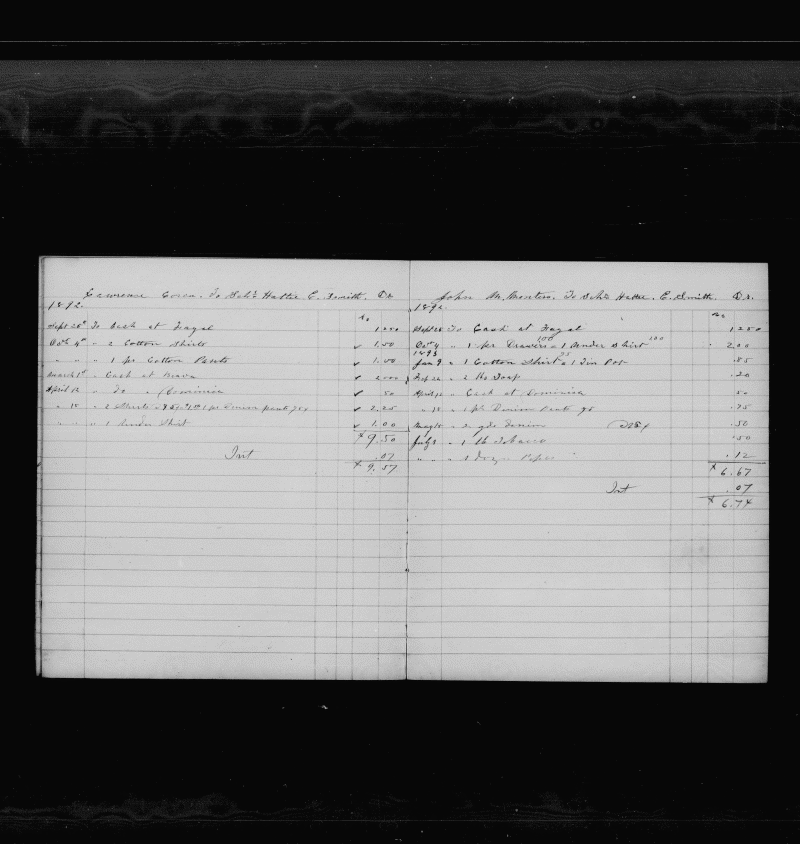 Lawrence Correa. To Schr Hattie E. Smith. Dr
1892.
Sept 28th To Cash at Fayal 1.25 0
Octh 4th " 2 Cotton Shirts ✓ 1.50
" " " 1 pr Cotton Pants ✓ 1.00
March 1st " Cash at Brava ✓ 2.00 0
April 12 " To " Dominica ✓ 50
" 15 " 2 Shirts 1 pr Denim pants 75 ✓ 2.25
" " " 1 Under Shirt ✓ 1.00
$9.50
Int .07
$9.57
John M. Montero. To Schr Hattie. E. Smith. Dr.
1892
Sept 28 To Cash at Fayal 1.25 0
Oct 4 " 1 pr Drawers 100 1 Under Shirt 100 2.00
1893
Jan 9 " 1 Cotton Shirt 75 1 Tin Pot .85
Feb 24 " 2 lbs Soap .20
April 12 " Cash at Dominica 50
" 15 " 1 pr Denim Pants 75 .75
May 15 " 2 yds Denim @25¢ .50
July 3 " 1 lb Tobacco .50
" " " Pipes .12
$6.67
Int .07
$6.74